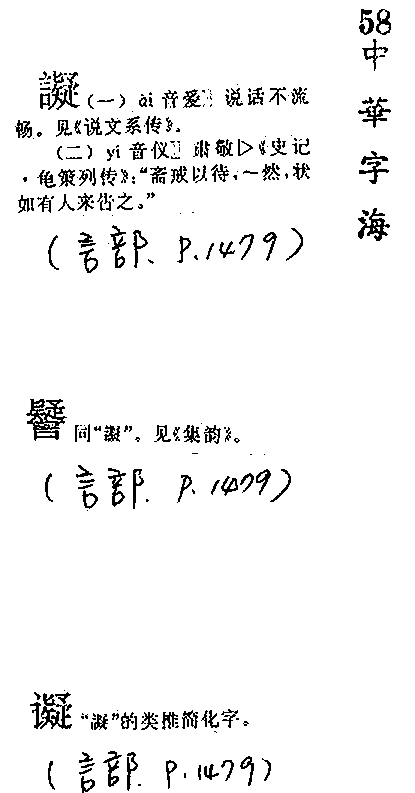 58
中華字海
譺(一)ài音爱〗说话不流
畅。见《说文系传》。
(二)yí音仪〗肃敬▷《史记
·龟策列传》:“斋戒以待,~然,状
如有人来告之。”
(言部. P.1479)
同“譺”。见《集韵》。
(言部. P.1479)
“譺”的类推简化字。
(言部. P.1479)